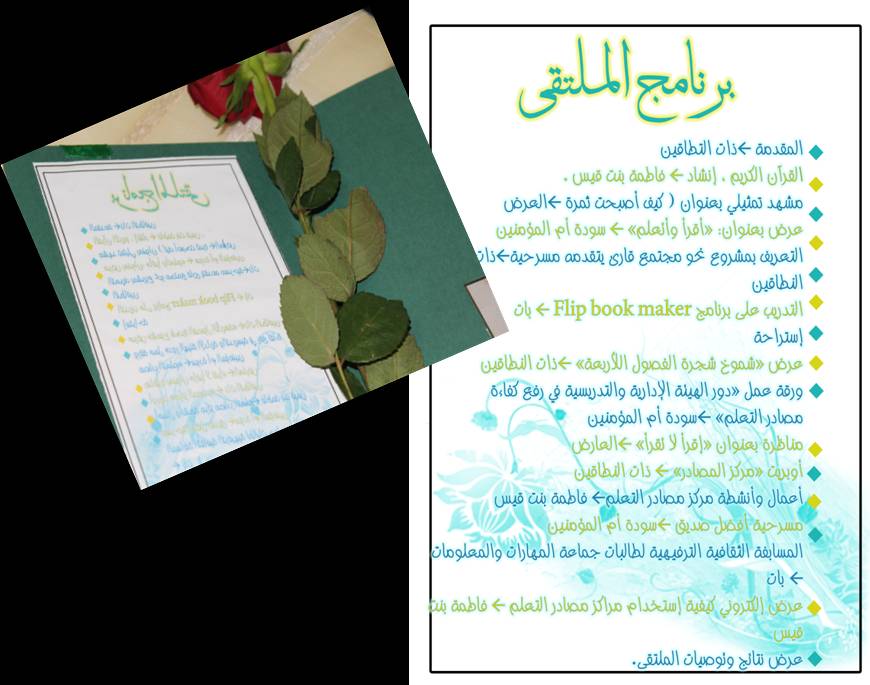 برنامج الملتقى
المقدمة ←ذات النطاقين
القرآن الكريم ، إنشاد ← فاطمة بنت قيس .
مشهد تمثيلي بعنوان ( كيف أصبحت ثمرة ←العرض
عرض بعنوان: «أقرأ وأتعلم» ← سودة أم المؤمنين
التعريف بمشروع نحو مجتمع قارئ يتقدمه مسرحية←ذات
النطاقين
التدريب على برنامج Flip book maker ← بات
إستراحة
عرض «شموخ شجرة الفصول الأربعة» ←ذات النطاقين
ورقة عمل «دور الهيئة الإدارية والتدريسية في رفع كفاءة
مصادر التعلم» ←سودة أم المؤمنين
مناظرة بعنوان «إقرأ لا تقرأ» ←العارض
أوبريت «مركز المصادر» ← ذات النطاقين
أعمال وأنشطة مركز مصادر التعلم← فاطمة بنت قيس
مسرحية أفضل صديق ←سودة أم المؤمنين
المسابقة الثقافية الترفيهية لطالبات جماعة المهارات والمعلومات
← بات
عرض إلكتروني كيفية إستخدام مراكز مصادر التعلم ← فاطمة بنت
قيس
عرض نتائج وتوصيات الملتقى.